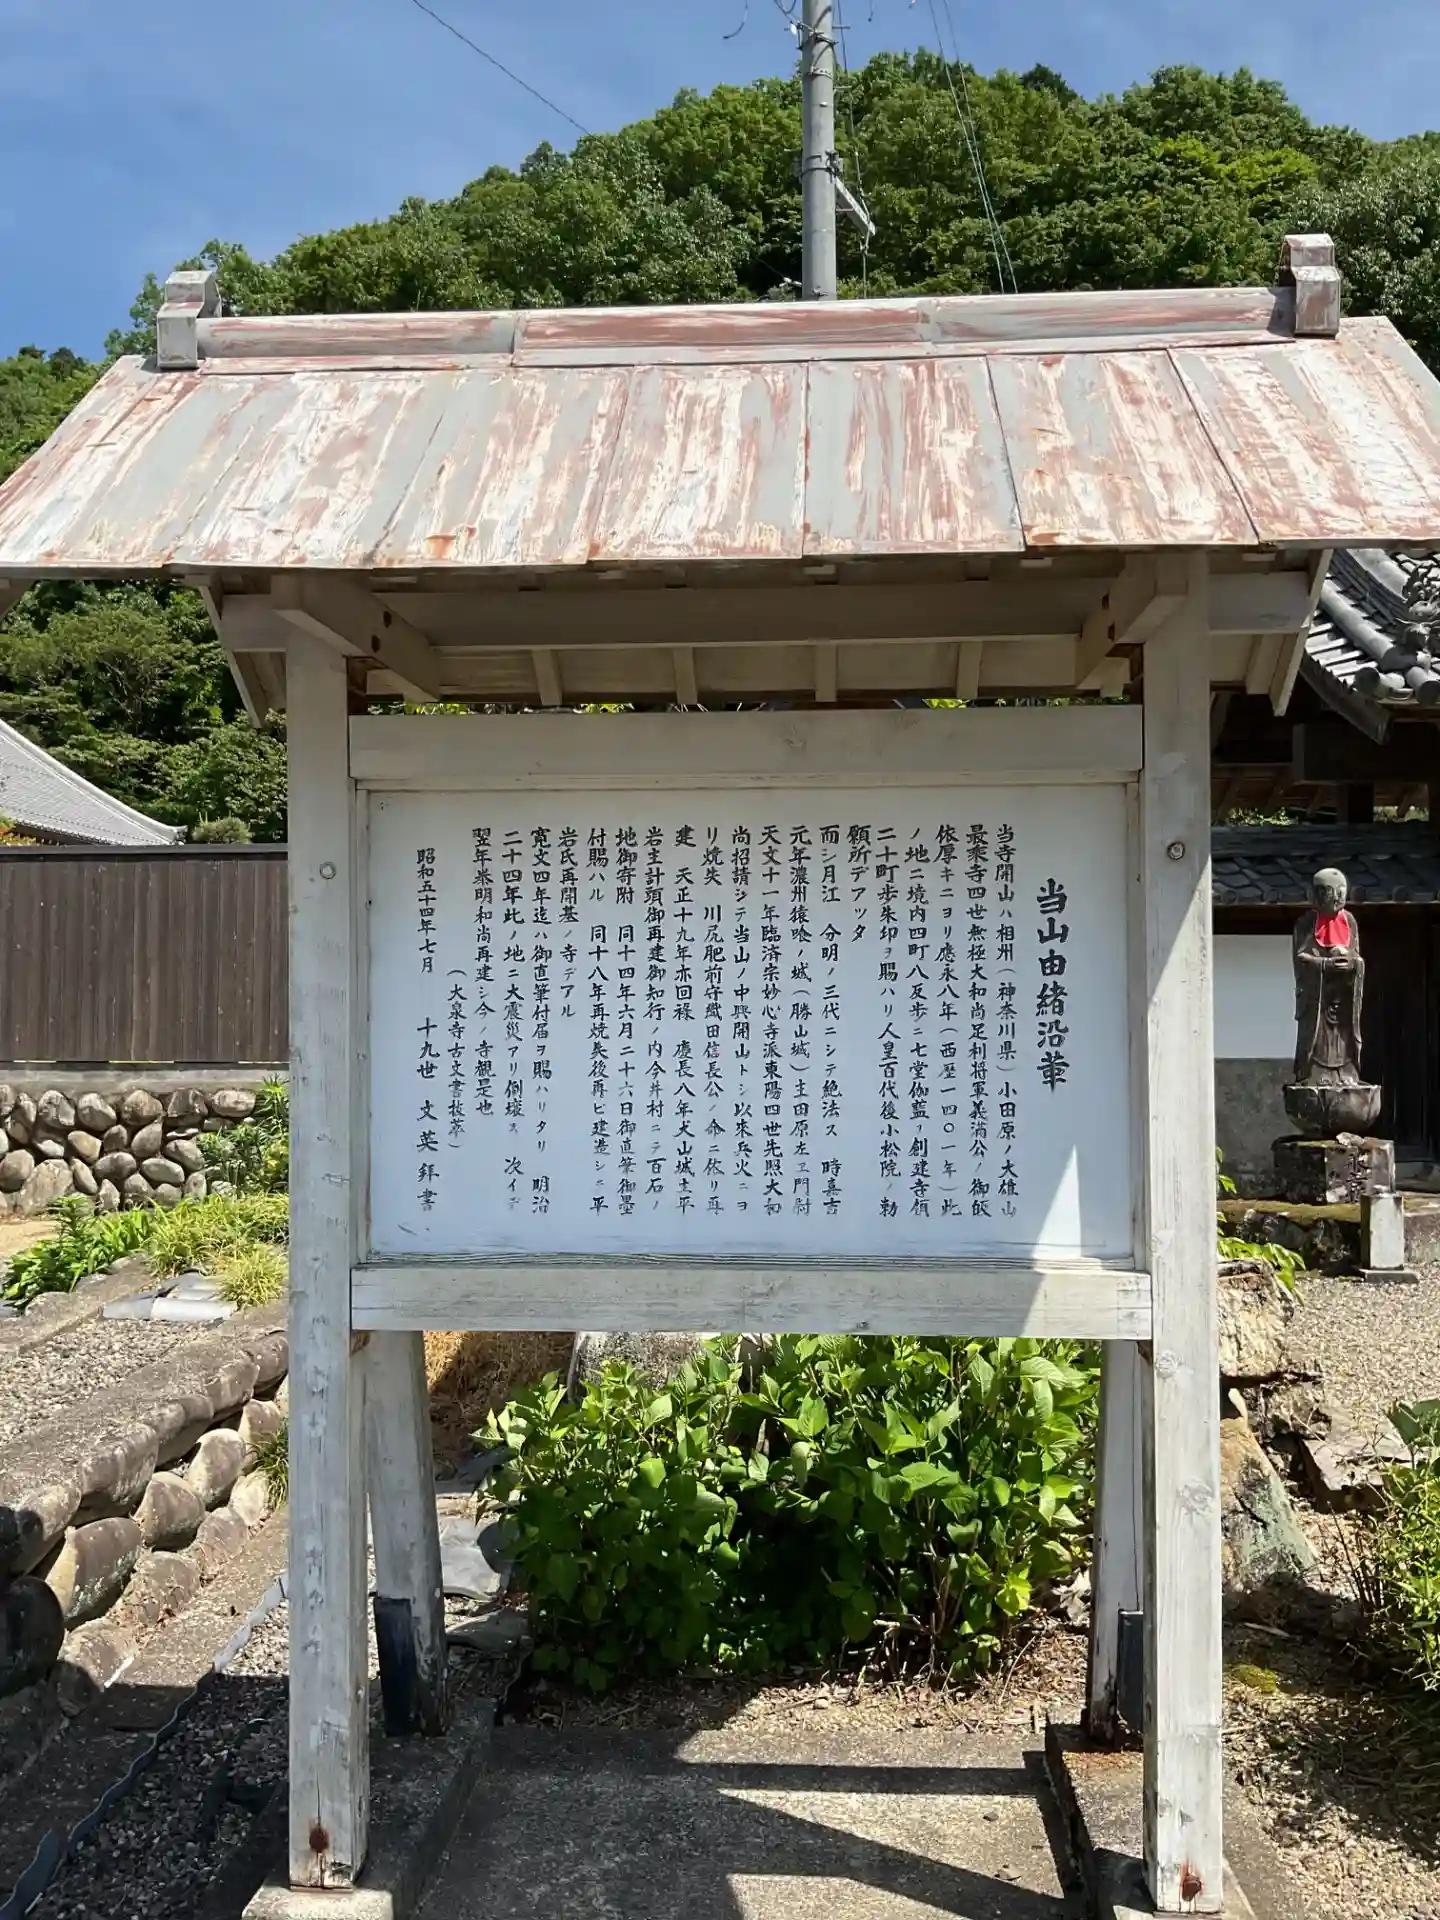 当山由緒沿革
当寺開山ハ相州(神奈川県)小田原ノ大雄山
最乘寺四世無極大和尚足利将軍義満公ノ御皈
依厚キニヨリ應永八年(西歴一四〇一年)此
ノ地ニ境内四町八反歩ニ七堂伽藍ヲ創建寺領
二十町歩朱印ヲ賜ハリ人皇百代後小松院ノ勅
願所デアッタ
而シ月江 分明ノ三代ニシテ絶法ス 時嘉吉
元年濃州猿喰ノ城(勝山城)主田原左ヱ門尉
天文十一年臨済宗妙心寺派東陽四世先照大和
尚招請シテ当山ノ中興開山トシ以来兵火ニヨ
リ焼失 川尻肥前守織田信長公ノ命ニ依リ再
建 天正十九年亦回祿 慶長八年犬山城主平
岩主計頭御再建御知行ノ内今井村ニテ百石ノ
地御寄附 同十四年六月二十六日御直筆御墨
付賜ハル 同十八年再焼失後再ビ建造シニ平
岩氏再開基ノ寺デアル
寛文四年迄ハ御直筆付届ヲ賜ハリタリ 明治
二十四年此ノ地ニ大震災アリ倒壊ス 次イデ
翌年泰明和尚再建シ今ノ寺観是也
(大泉寺古文書抜萃)
昭和五十四年七月 十九世 文英拝書